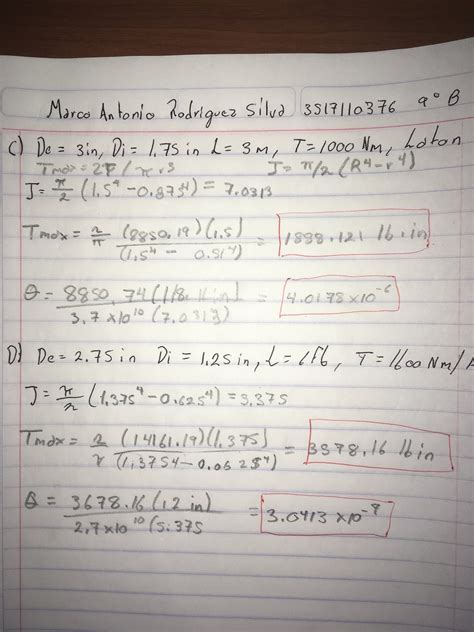 Marco Antonio Rodriguez Silva 3517110376 9° B
C) De = 3in, Di = 1.75 in L = 3m, T = 1000 Nm, Laton
Tmax = 2P / π r3 J = π/2 (R4 - r4)
J = π/2 (1.5⁴ - 0.875⁴) = 7.0313
Tmax = 2/π (8850.19)(1.5) / (1.5⁴ - ) = 1898.121 lb.in
θ = 8850.74 (118. in) / 3.7 x10¹⁰ (7.0313) = 4.0178 x10⁻⁶
D) De = 2.75 in Di = 1.25 in, L = 6ft, T = 1600 Nm/
J = π/2 (1.375⁴ - 0.625⁴) = 5.375
Tmax = 2/π (14161.19)(1.375) / (1.3754 - 0.6254) = 3578.16 lb in
θ = 3678.16 (12 in) / 2.7 x10¹⁰ (5.375 = 3.0413 x10⁻⁸